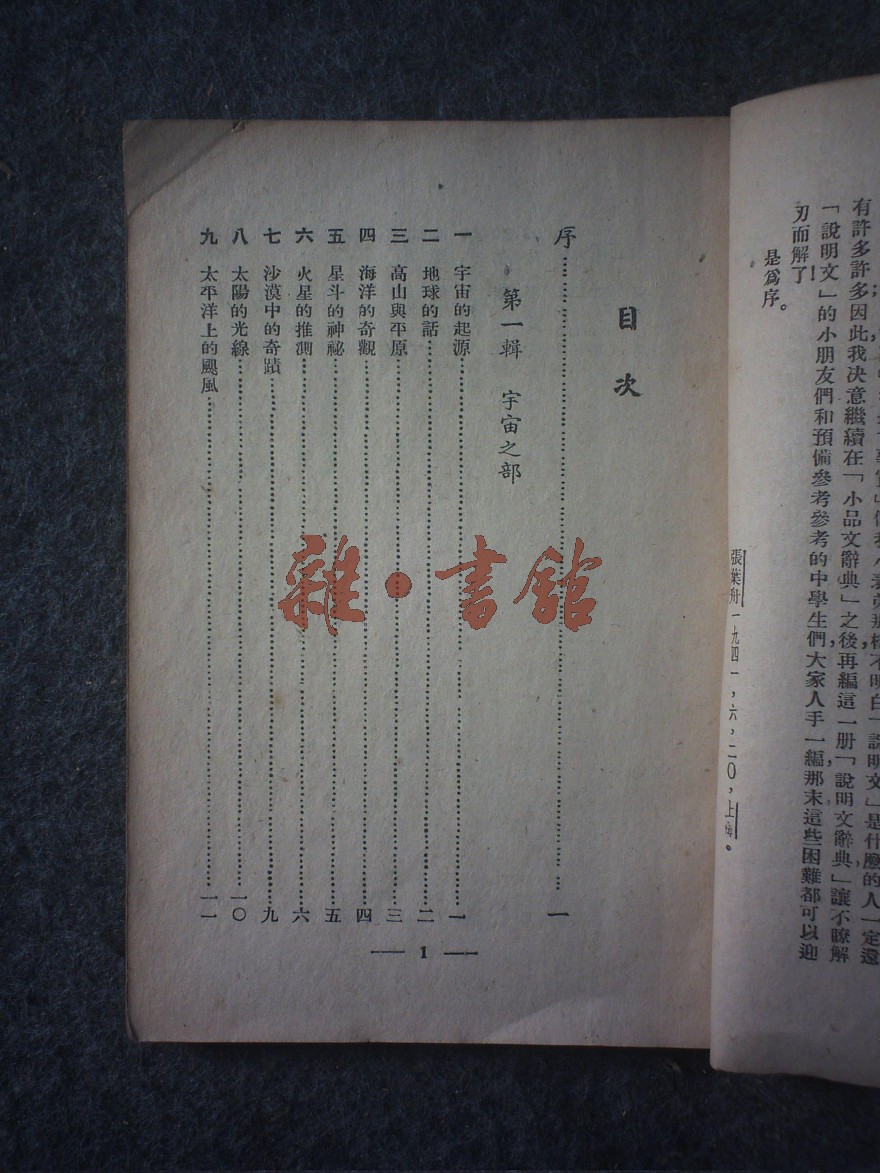 有許多許多因此我决意繼續在「小品文辭典」之後,再編這一册「說明文辭典」,讓不瞭解
「說明文」的小朋友們和預備參考參考的中學生們,大家人手一編,那末這些困難都可以迎
刃而解了!
是爲序。
張葉舟一九四一,六,二〇,上海。
目次
序 一
第一輯 宇宙之部
一 宇宙的起源 一
二 地球的話 二
三 高山與平原 三
四 海洋的奇觀 四
五 星斗的神祕 五
六 火星的推測 六
七 沙漠中的奇蹟 九
八 太陽的光線 一〇
九 太平洋上的颶風 一一
1
雜·書館